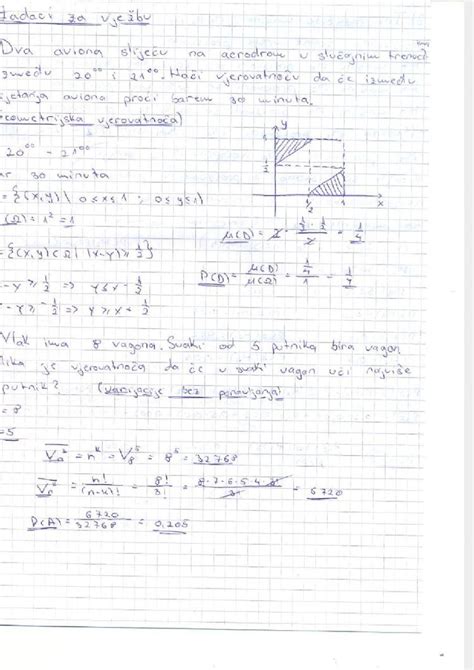 Zadaci za vježbu
Dva aviona slijeću na aerodrom u slučajnim trenuci
između 20⁰⁰ i 21⁰⁰. Naći vjerovatnoću da će između
ijetanja aviona proći barem 30 minuta.
eometrijska vjerovatnoća)
20⁰⁰ - 21⁰⁰
ar 30 minuta
= {(x,y) | 0≤x≤1 ; 0≤y≤1}
(Ω) = 1² = 1
= {(x,y) ∈ Ω | |x-y| ≥ 1/2}
-y ≥ 1/2 => y ≤ x - 1/2
-y ≥ -1/2 => y ≥ x + 1/2
y
1
1/2
1/2
1
x
μ(D) = 2 · (1/2 · 1/2)/2 = 1/4
P(D) = μ(D)/μ(Ω) = (1/4)/1 = 1/4
Vlak ima 8 vagona. Svaki od 5 putnika bira vagon
lika je vjerovatnoća da će u svaki vagon ući najviše
putnik? (varijacije bez ponavljanja)
= 8
= 5
V̅ₙ = nᵏ = V₈⁵ = 8⁵ = 32768
V̅ₙ = n!/(n-k)! = 8!/3! = 8·7·6·5·4·3!/3! = 6720
P(A) = 6720/32768 = 0,205